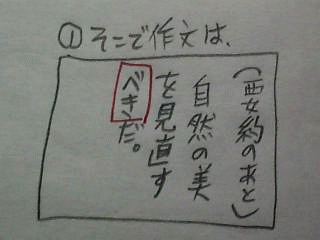 ①そこで作文は、
(要約のあと)
自然の美
を見直す
べきだ。